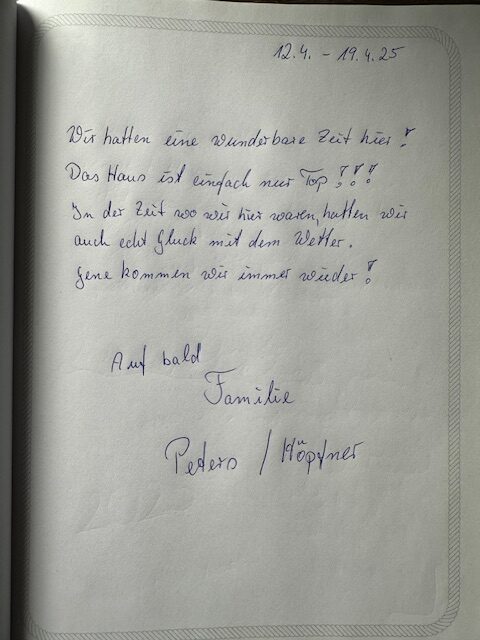 12.4. - 19.4.25
Wir hatten eine wunderbare Zeit hier!
Das Haus ist einfach nur Top!!!
In der Zeit wo wir hier waren, hatten wir
auch echt Glück mit dem Wetter.
Gene kommen wir immer wieder!
Auf bald
Familie
Peters / Höpfner